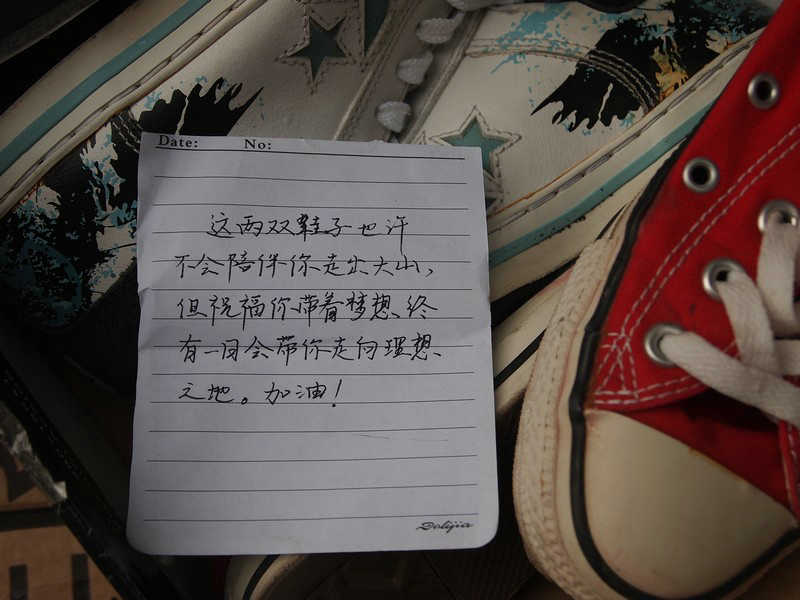 Date: No:
这两双鞋子也许
不会陪伴你走出大山，
但祝福你带着梦想、终
有一日会带你走向理想、
之地。加油！
Delijia